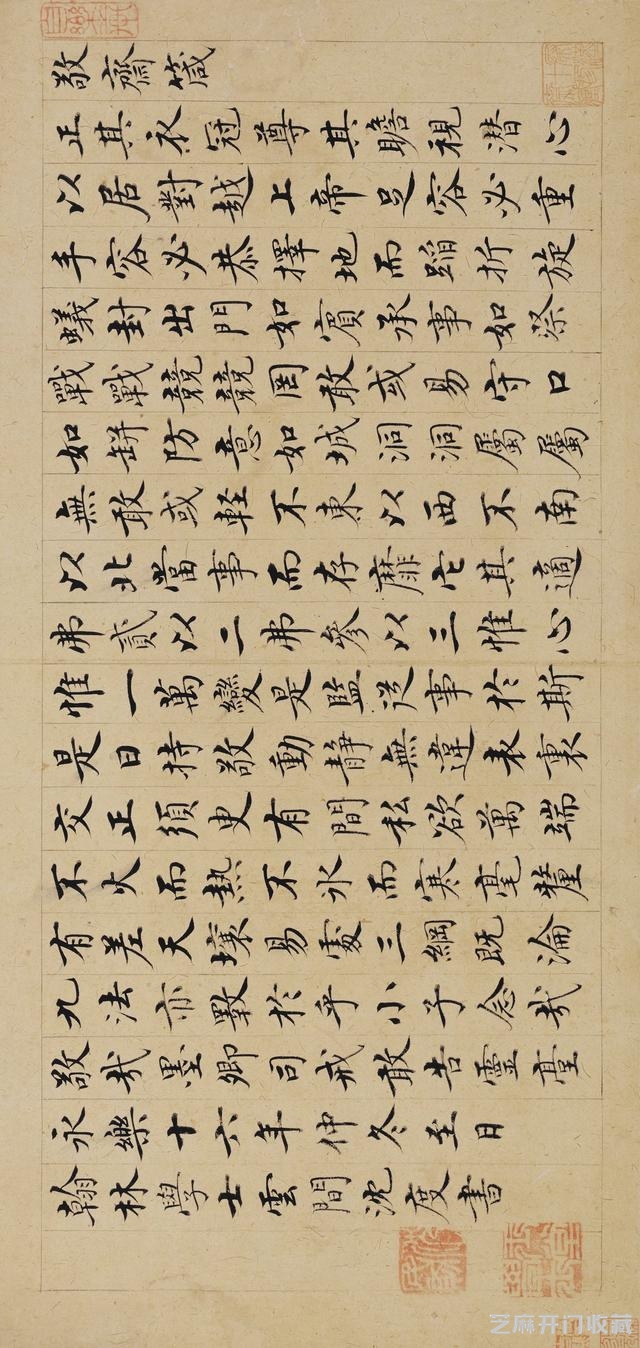 敬齋箴
正其衣冠尊其瞻視潛心
以居對越上帝足容必重
手容必恭擇地而蹈折旋
蟻封出門如賓承事如祭
戰戰兢兢罔敢或易守口
如缾防意如城洞洞屬屬
無敢或軽不東以西不南
以北當事而存靡它其適
弗貳以二弗參以三惟心
惟一萬變是監從事於斯
是曰持敬動靜無違表裏
交正須臾有間私欲萬端
不火而熱不氷而寒毫釐
有差天壤易處三綱既淪
九法亦斁於乎小子念哉
敬哉墨卿司戒敢告靈臺
永樂十六年仲冬至日
翰林學士雲間沈度書
芝麻开门收藏